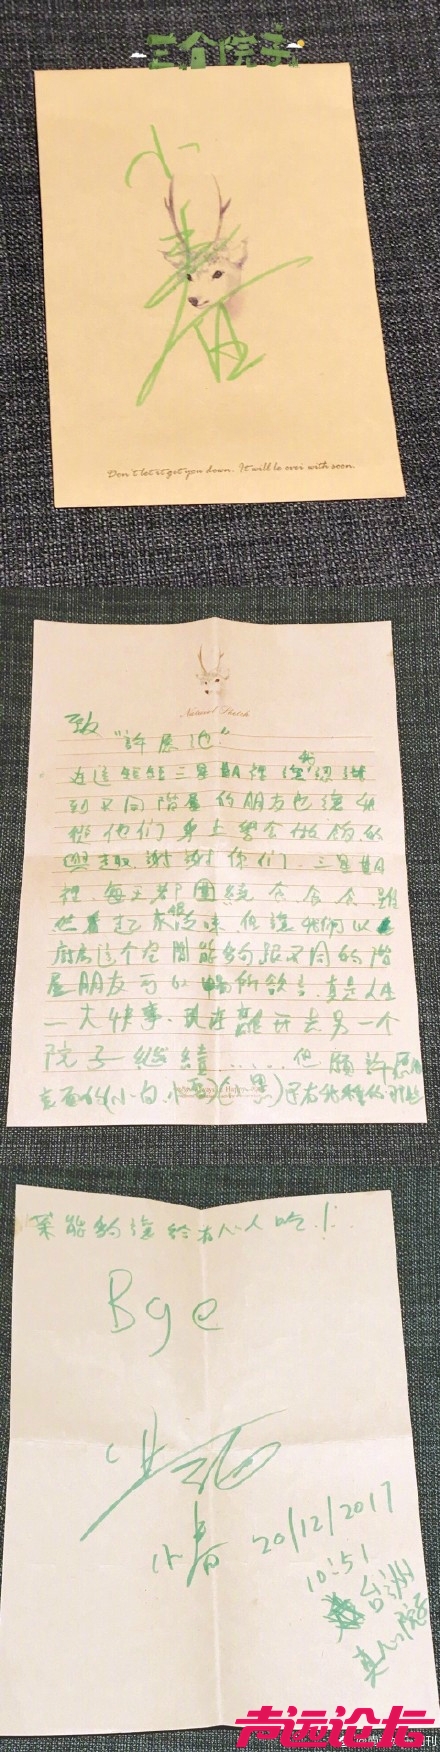 三个院子
小
春
Don't let it get you down. It will be over with soon.
Natural Sketch
致
"許愿池"
在這短短三星期裡讓我認識
到不同階層的朋友也讓我
從他们身上學会做餸的
興趣.謝謝你们.三星期
裡.每天都圍繞食食食.雖
然看起來很沒味.但讓我們以
廚房这个空間能夠跟不同的階
層朋友可以暢所欲言.真是人生
一大快事.現在離开去另一个
院子继續......但願許愿池
裏面的(小白.小 小黑)还有我種的那些
菜能夠讓給有心人吃!!
Bye
小春
20/12/2017
10:51
台州
真心院子
声远论坛